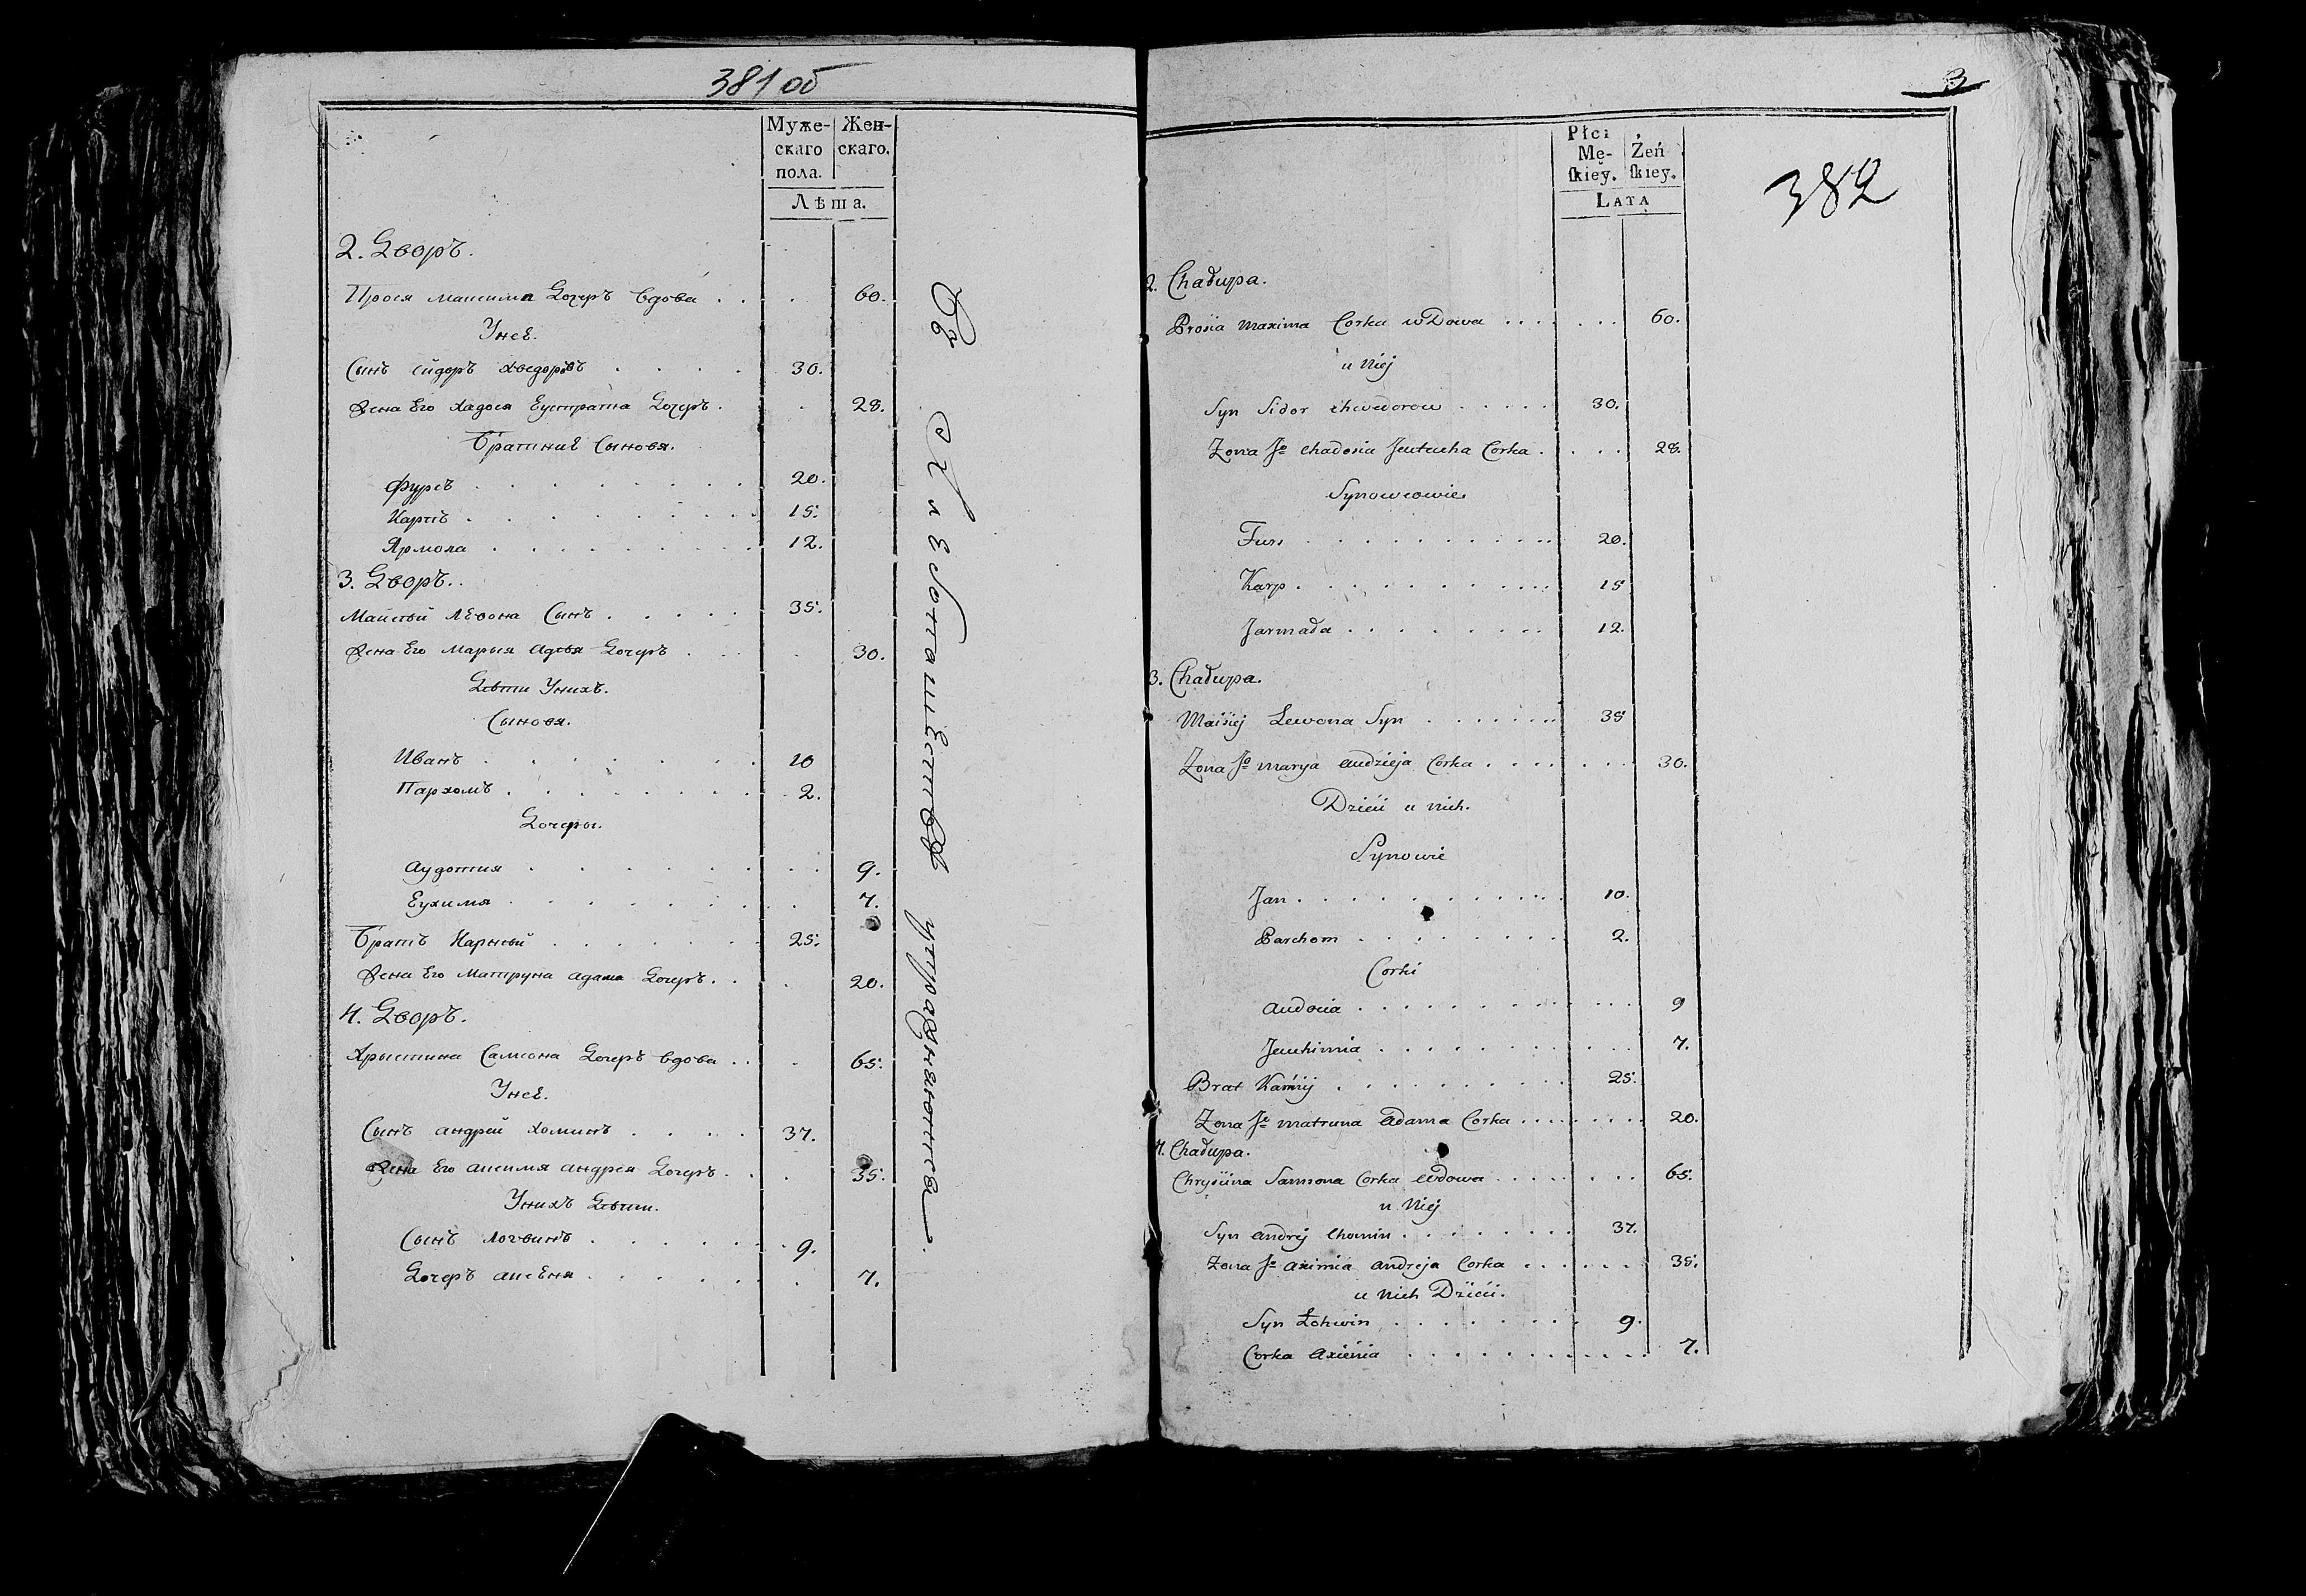 381 об
Муже-
скаго
пола.
Жен-
скаго.
Лѣта.
2. Дворъ.
Прося Максима Дочерь вдова . . . 60.
У нее.
Сынъ Сидоръ Хведоровъ . . . . 30.
Жена Его Хадося Еутуха Дочерь . . 28.
Братние Сыновя.
Фурсъ . . . . . . . . 20.
Карпъ . . . . . . . . 15.
Ярмола . . . . . . . . 12.
3. Дворъ.
Майсѣй Левона Сынъ . . . . . 35.
Жена Его Марья Адѣя Дочерь . . . 30.
Дѣти У нихъ.
Сыновя.
Иванъ . . . . . . . . 10
Пархомъ . . . . . . . . 2.
Дочеры.
Аудотия . . . . . . . . 9.
Еухимя . . . . . . . . 7.
Братъ Карнѣй . . . . . . 25.
Жена Его Матруна Адама Дочерь . . . 20.
4. Дворъ.
Хрыстина Самсона Дочерь вдова . . . 65.
У нее.
Сынъ Андрей Хоминъ . . . . 37.
Жена Его Аксимя Андрея Дочерь . . . 35.
У нихъ Дѣти.
Сынъ Логвинъ . . . . . . 9.
Дочерь Аксеня . . . . . . 7.
3
382
Płci
Mę-
skiey.
Żeń
skiey.
LATA
2. Chałupa.
Prosia Maxima Corka wDowa . . . . . . . 60.
u Niej
Syn Sidor Chwedorow . . . . . 30.
Żona Jo Chadosia Jeutucha Corka . . . . 28.
Synowcowie
Furs . . . . . . . . . . . 20.
Karp . . . . . . . . . . . 15
Jarmała . . . . . . . . 12.
3. Chałupa.
Maisiej Lewona Syn . . . . . . . 35
Żona Jo Marya Audzieja Corka . . . . . . . 30.
Dzieci u nich.
Synowie
Jan . . . . . . . . . . . 10.
Parchom . . . . . . . . 2.
Corki
Audocia . . . . . . . . . . . 9
Jeuchimia . . . . . . . . . . 7.
Brat Karniej . . . . . . . . . 25.
Żona Jo Matruna Adama Corka . . . . . . . 20.
4. Chałupa.
Chryscina Samsona Corka Wdowa . . . . . . . 65.
u Niej
Syn Andrej Chomin . . . . . . . 37.
Żona Jo Aximia Andreja Corka . . . . . . 35.
u nich Dzieci.
Syn Łohwin . . . . . . . 9.
Corka Axienia . . . . . . . . . . 7.